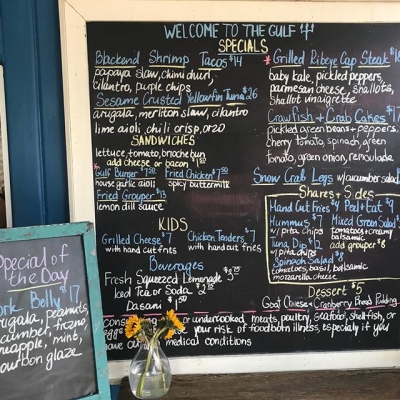 WELCOME TO THE GULF
SPECIALS
Blackend Shrimp Tacos $14
papaya slaw, chimi churi,
cilantro, purple chips
Sesame Crusted Yellowfin Tuna $26
arugala, merliton slaw, cilantro
lime aioli, chili crisp, orzo
SANDWICHES
lettuce, tomato, brioche bun
add cheese or bacon $1
Gulf Burger
house garlic aioli
Fried Chicken
spicy buttermilk
Fried Grouper $13
lemon dill sauce
KIDS
Grilled Cheese $7
with hand cut fries
Chicken Tenders $7
with hand cut fries
Beverages
Fresh Squeezed Lemonade
Iced Tea or Soda
Dasani
* Grilled Ribeye Cap Steak
baby kale, pickled peppers,
parmesan cheese, shallots,
shallot vinaigrette
Crawfish + Crab Cakes $17
pickled green beans + peppers,
cherry tomato, spinach, green
tomato, green onion, remoulade
Snow Crab Legs w/ cucumber salad
Shares + Sides
Hand Cut Fries $4
Peel + Eat $9
Hummus $7
w/ pita chips
Mixed Green Salad
tomatoes + creamy
balsamic
add grouper $8
Tuna Dip $12
w/ pita chips
Spinach Salad $8
tomatoes, basil, balsamic
mozzarella, shallots
Dessert $5
Goat Cheese + Cranberry Bread Pudding
or undercooked meats, poultry, seafood, shellfish, or
your risk of foodborn illness, especialy if you
have
medical conditions
Special of
the Day
Pork Belly $17
arugala, peanuts,
cucumber, frezno
pineapple, mint,
bourbon glaze